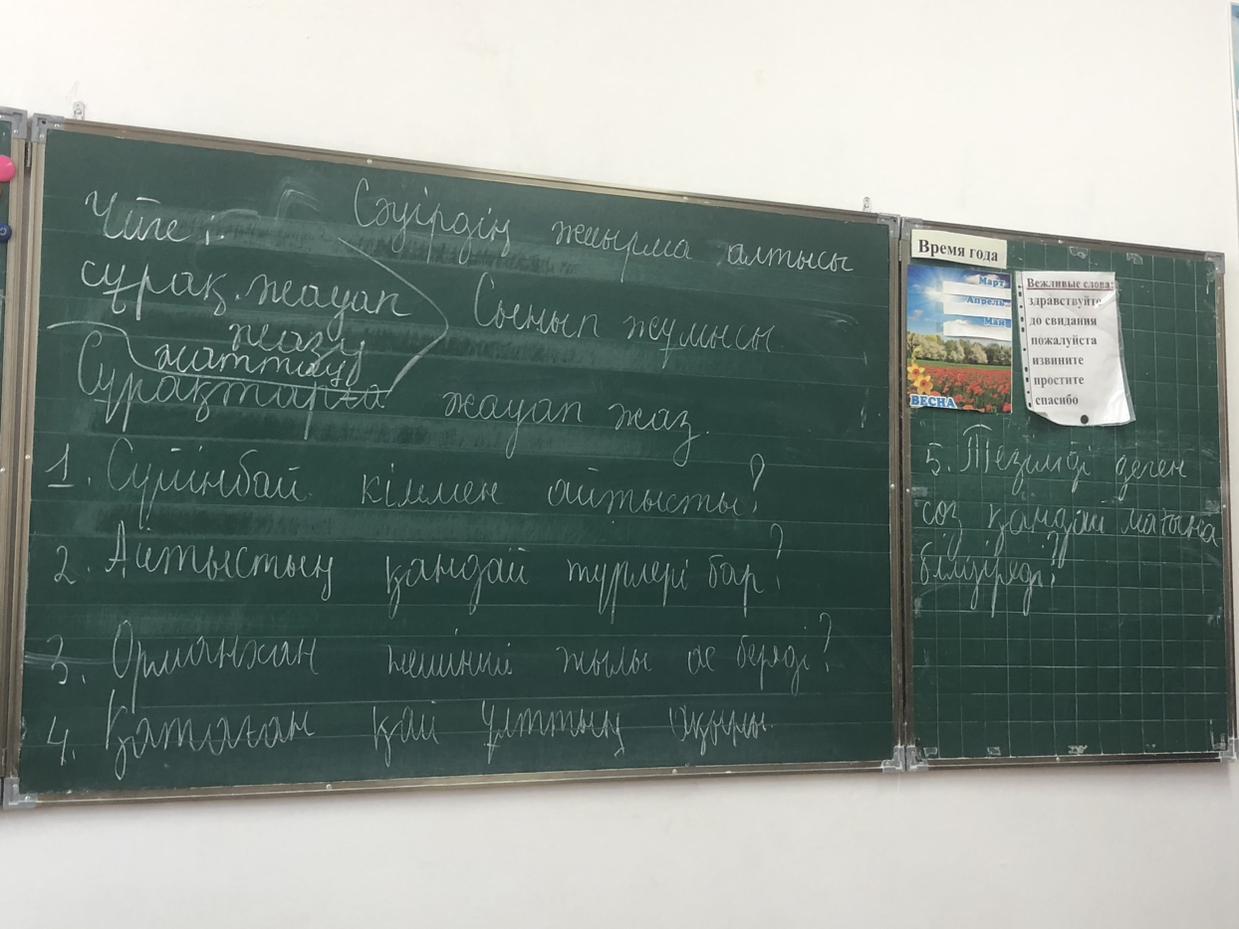 Сәуірдің жиырма алтысы
Үйге:
сұрақ жауап
жазу
жаттау
Сынып жұмысы
Сұрақтарға жауап жаз.
1. Сүйінбай кіммен айтысты?
2. Айтыстың қандай түрлері бар?
3. Орманхан нешінші жылы ас береді?
4. Қатаған қай ұлттың ақыны.
Время года
Март
Апрель
Май
ВЕСНА
Вежливые слова:
здравствуйте
до свидания
пожалуйста
извините
простите
спасибо
5. Тезімді деген
сөз қандай мағына
білдіреді?